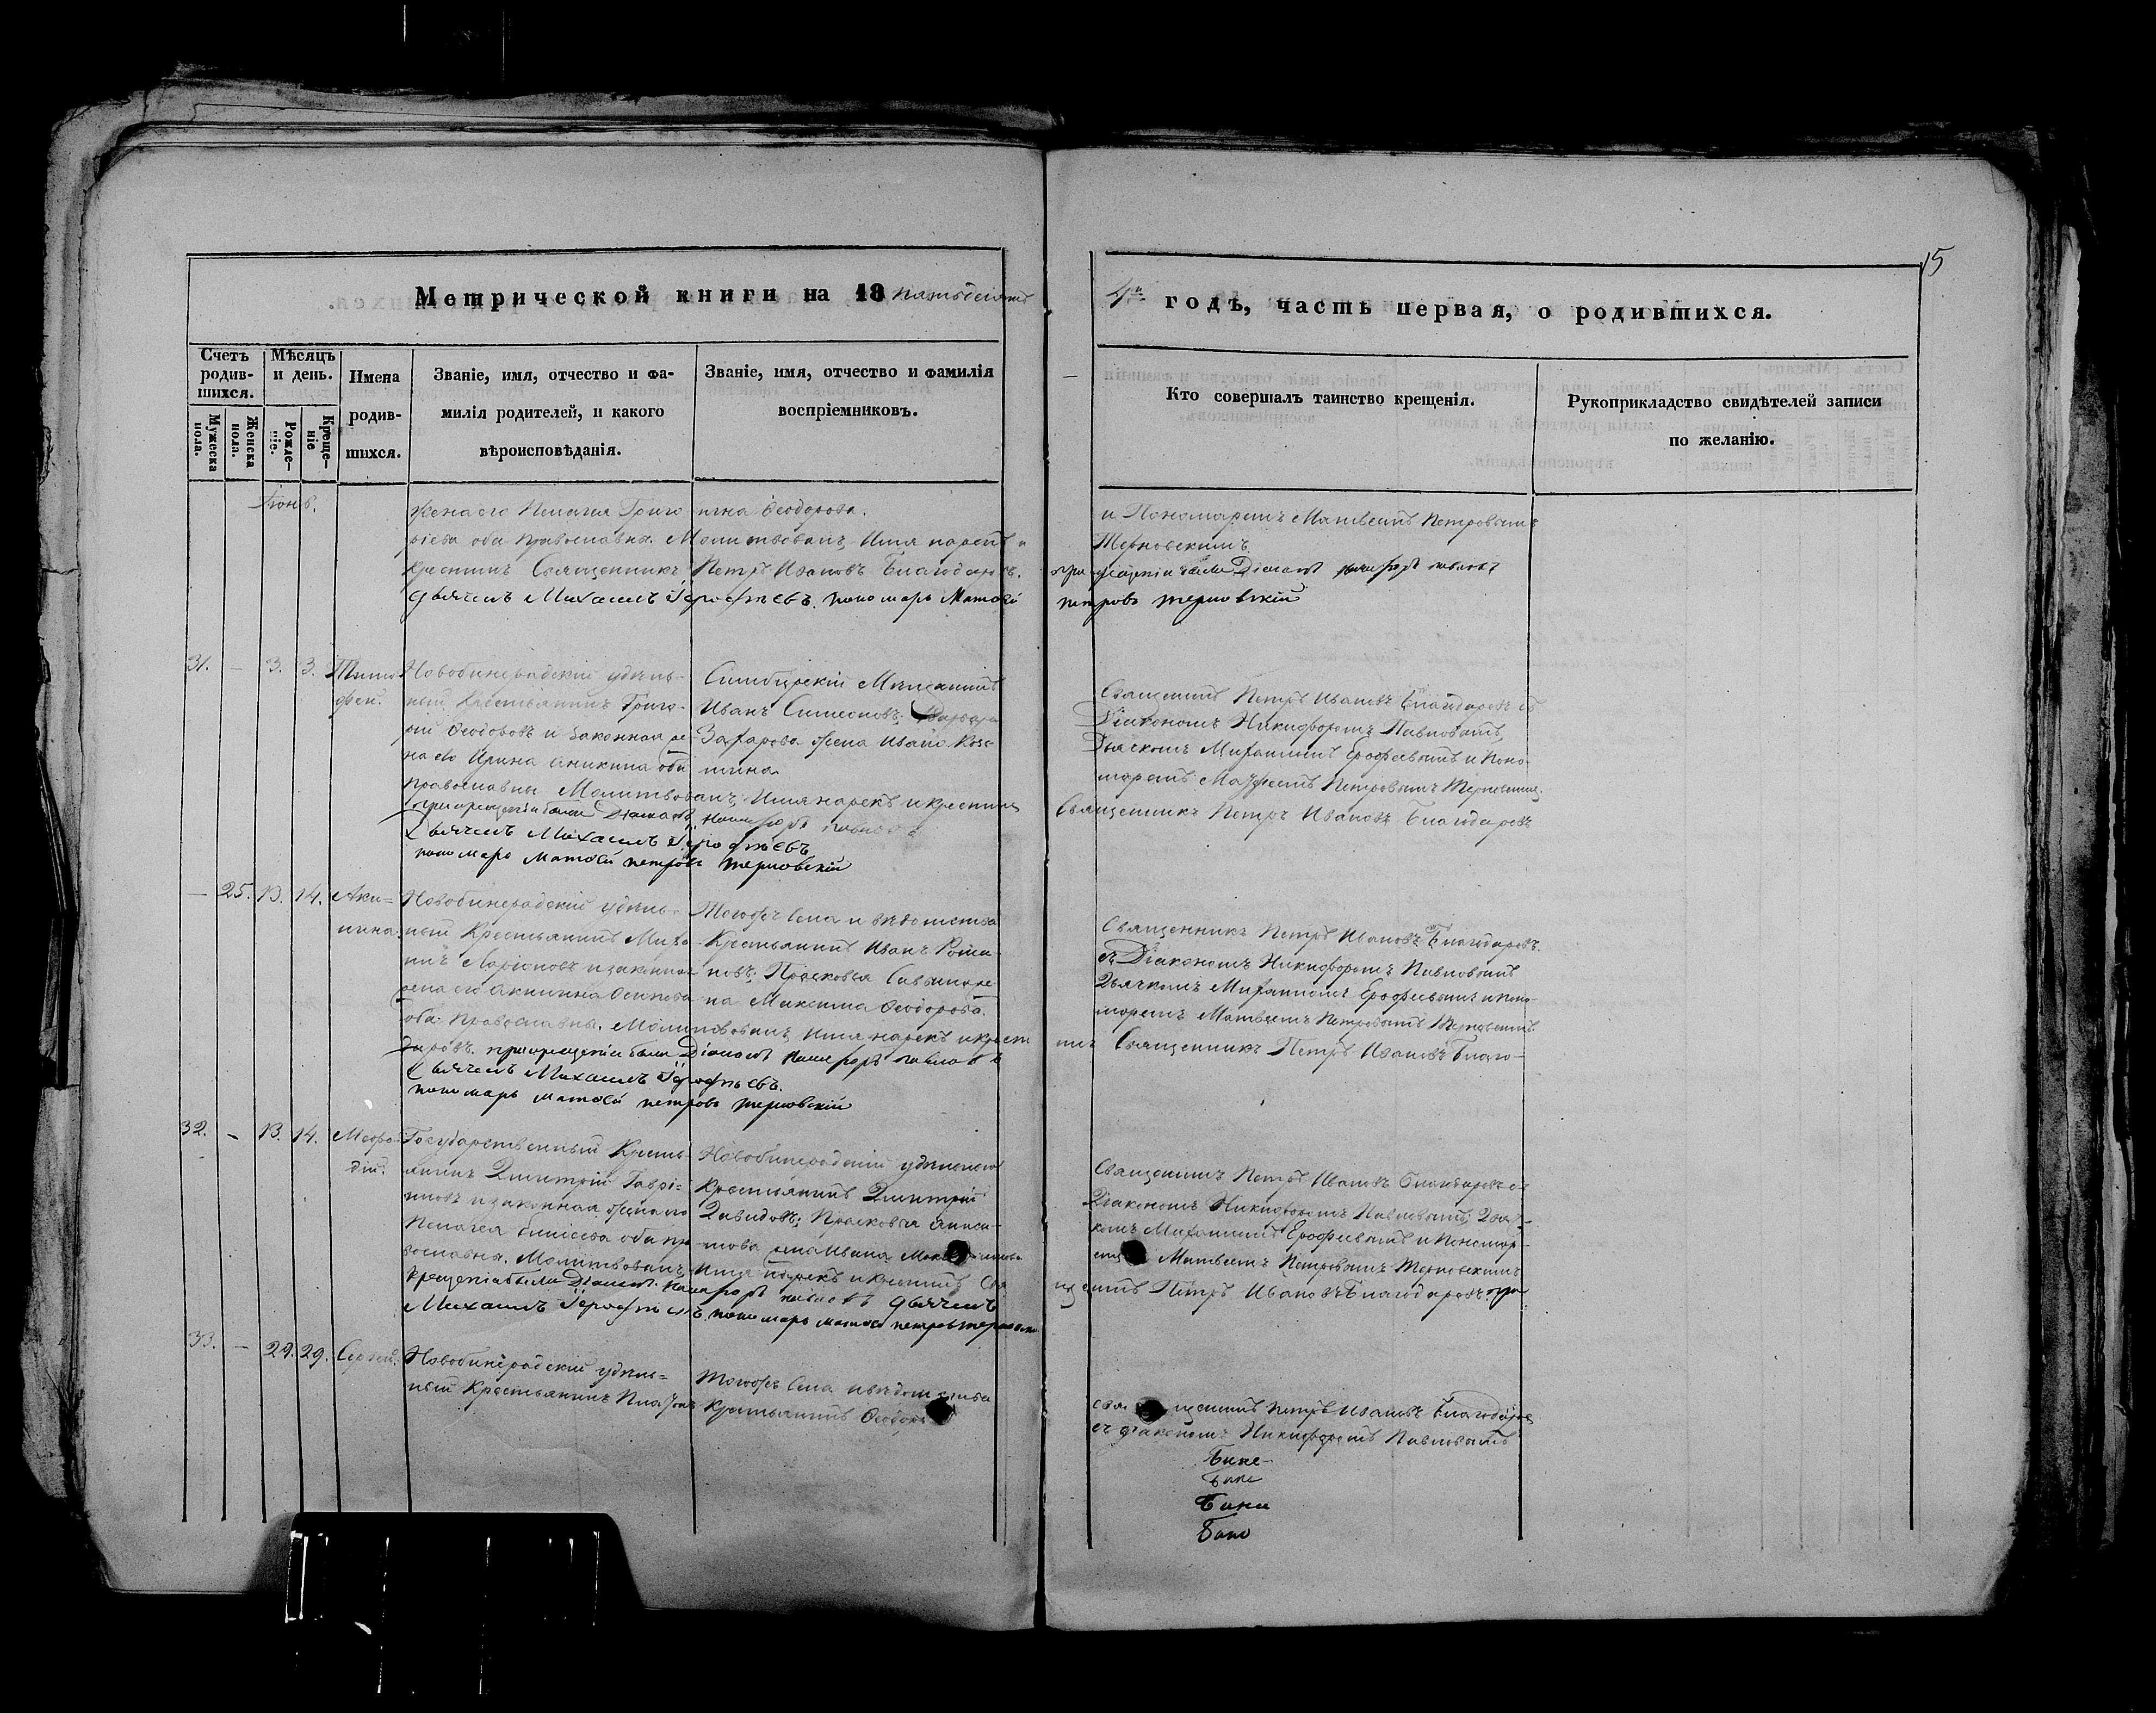 15
Метрической книги на 18 пятьдесятъ
4й годъ, часть первая, о родившихся.
Счетъ родив-шихся.
Мужеска пола.
Женска пола.
Мѣсяцъ и день.
Рожде-ніе.
Креще-ніе
Имена
родив-
шихся.
Званіе, имя, отчество и фа-
милія родителей, и какого
вѣроисповѣданія.
Званіе, имя, отчество и фамилія
воспріемниковъ.
Кто совершалъ таинство крещенія.
Рукоприкладство свидѣтелей записи
по желанію.
Іюнь.
жена его Пелагея Григо
рьева оба православна. Молитвовалъ, Имя нарекъ и
крестилъ Священникъ
Дьячекъ Михаилъ Ерофѣевъ. пономарь Матвѣй
ична Ѳеодорова.
Петръ Ивановъ Благодаровъ.
и Пономаремъ Матвеемъ Петровымъ
Терновскимъ
при крещеніи были Діаконъ Никифоръ павловъ
петровъ терновскій
31. – 3. 3. Тимо-
фей.
Новобинарадскій удѣль-
ный Крестьянинъ Григо-
рій Ѳеодоровъ и законная же-
на его Ирина Аникина оба
православны Молитвовалъ, Имя нарекъ и крестилъ
при крещеніи были Діаконъ Никифоръ павловъ
Дьячекъ Михаилъ Ерофѣевъ
пономарь Матвѣй петровъ терновскій
Симбирскій Мѣщанинъ
Иванъ Симеоновъ; Варвара
Захарова жена Ивана
Священникъ Петръ Ивановъ Благодаровъ съ
Діакономъ Никифоромъ Павловымъ,
Дьячкомъ Михаиломъ Ерофеевымъ и Поно-
маремъ Матфеемъ Петровымъ Терновскимъ.
Священникъ Петръ Ивановъ Благодаровъ
– 25. 13. 14. Аки-
лина.
Новобинарадскій удѣль-
ный Крестьянинъ Миха-
илъ Ларіоновъ и законная
жена его Акилина Осипова
оба Православны. Молитвовалъ, Имя нарекъ и крести
даровъ. при крещеніи были Діаконъ Никифоръ павловъ
Дьячекъ Михаилъ Ерофѣевъ.
пономарь Матвѣй петровъ терновскій
Тогожъ Села и вѣдомства
Крестьянинъ Иванъ Рома-
новъ; Прасковья Савина же-
на Максима Ѳеодорова.
Священникъ Петръ Ивановъ Благодаровъ.
съ Діакономъ Никифоромъ Павловымъ
Дьячкомъ Михаиломъ Ерофеевымъ и поно-
маремъ Матвеемъ Петровымъ Терновскимъ.
лъ Священникъ Петръ Ивановъ Благо-
32. – 13. 14. Мефо-
дій.
Государственный Кресть-
янинъ Димитрій Гаврі-
ловъ и законная жена его
Пелагея Елисеева оба пра
вославна. Молитвовалъ,
крещеніи были Діаконъ Никифоръ павловъ Дьячекъ
Михаилъ Ерофѣевъ пономарь матвѣй петровъ терновскій
Новобинарадскій удѣльный
Крестьянинъ Димитрій
Давидовъ; Прасковья
жена Ивана
Имя нарекъ и крестилъ Свя
Священникъ Петръ Ивановъ Благодаровъ съ
Діакономъ Никифоромъ Павловымъ; Дьяч-
комъ Михаиломъ Ерофеевымъ и Пономар-
емъ Матвеемъ Петровымъ Терновскимъ
щенникъ Петръ Ивановъ Благодаровъ. при
33. – 29. 29. Сергей.
Новобинарадскій удѣль-
ный Крестьянинъ Платонъ
Тогожъ Села и вѣдомства
Крестьянинъ Ѳеодоръ
священникъ Петръ Ивановъ Благодаровъ
съ діакономъ Никифоромъ Павловымъ